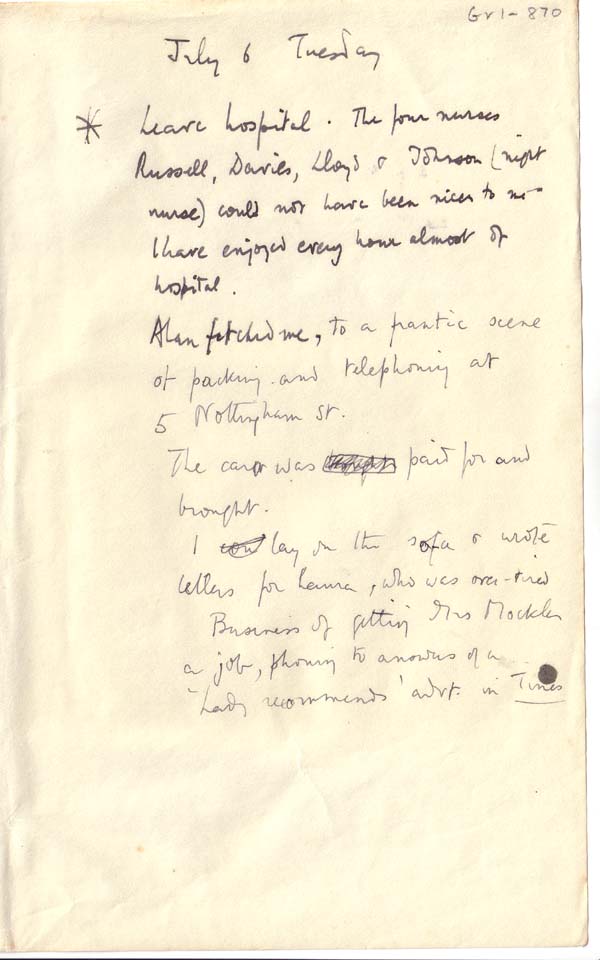 GV1-870
July 6 Tuesday
* Leave hospital. The four nurses
Russell, Davies, Lloyd & Johnson (night
nurse) could not have been nicer to me -
I have enjoyed every hour almost of
hospital.
Alan fetched me, to a frantic scene
of packing and telephoning at
5 Nottingham St.
The car was paid for and
brought.
I lay on the sofa & wrote
letters for Laura, who was over-tired
Business of getting Mrs Mockler
a job, phoning to answers of a
'Lady recommends' advt. in Times